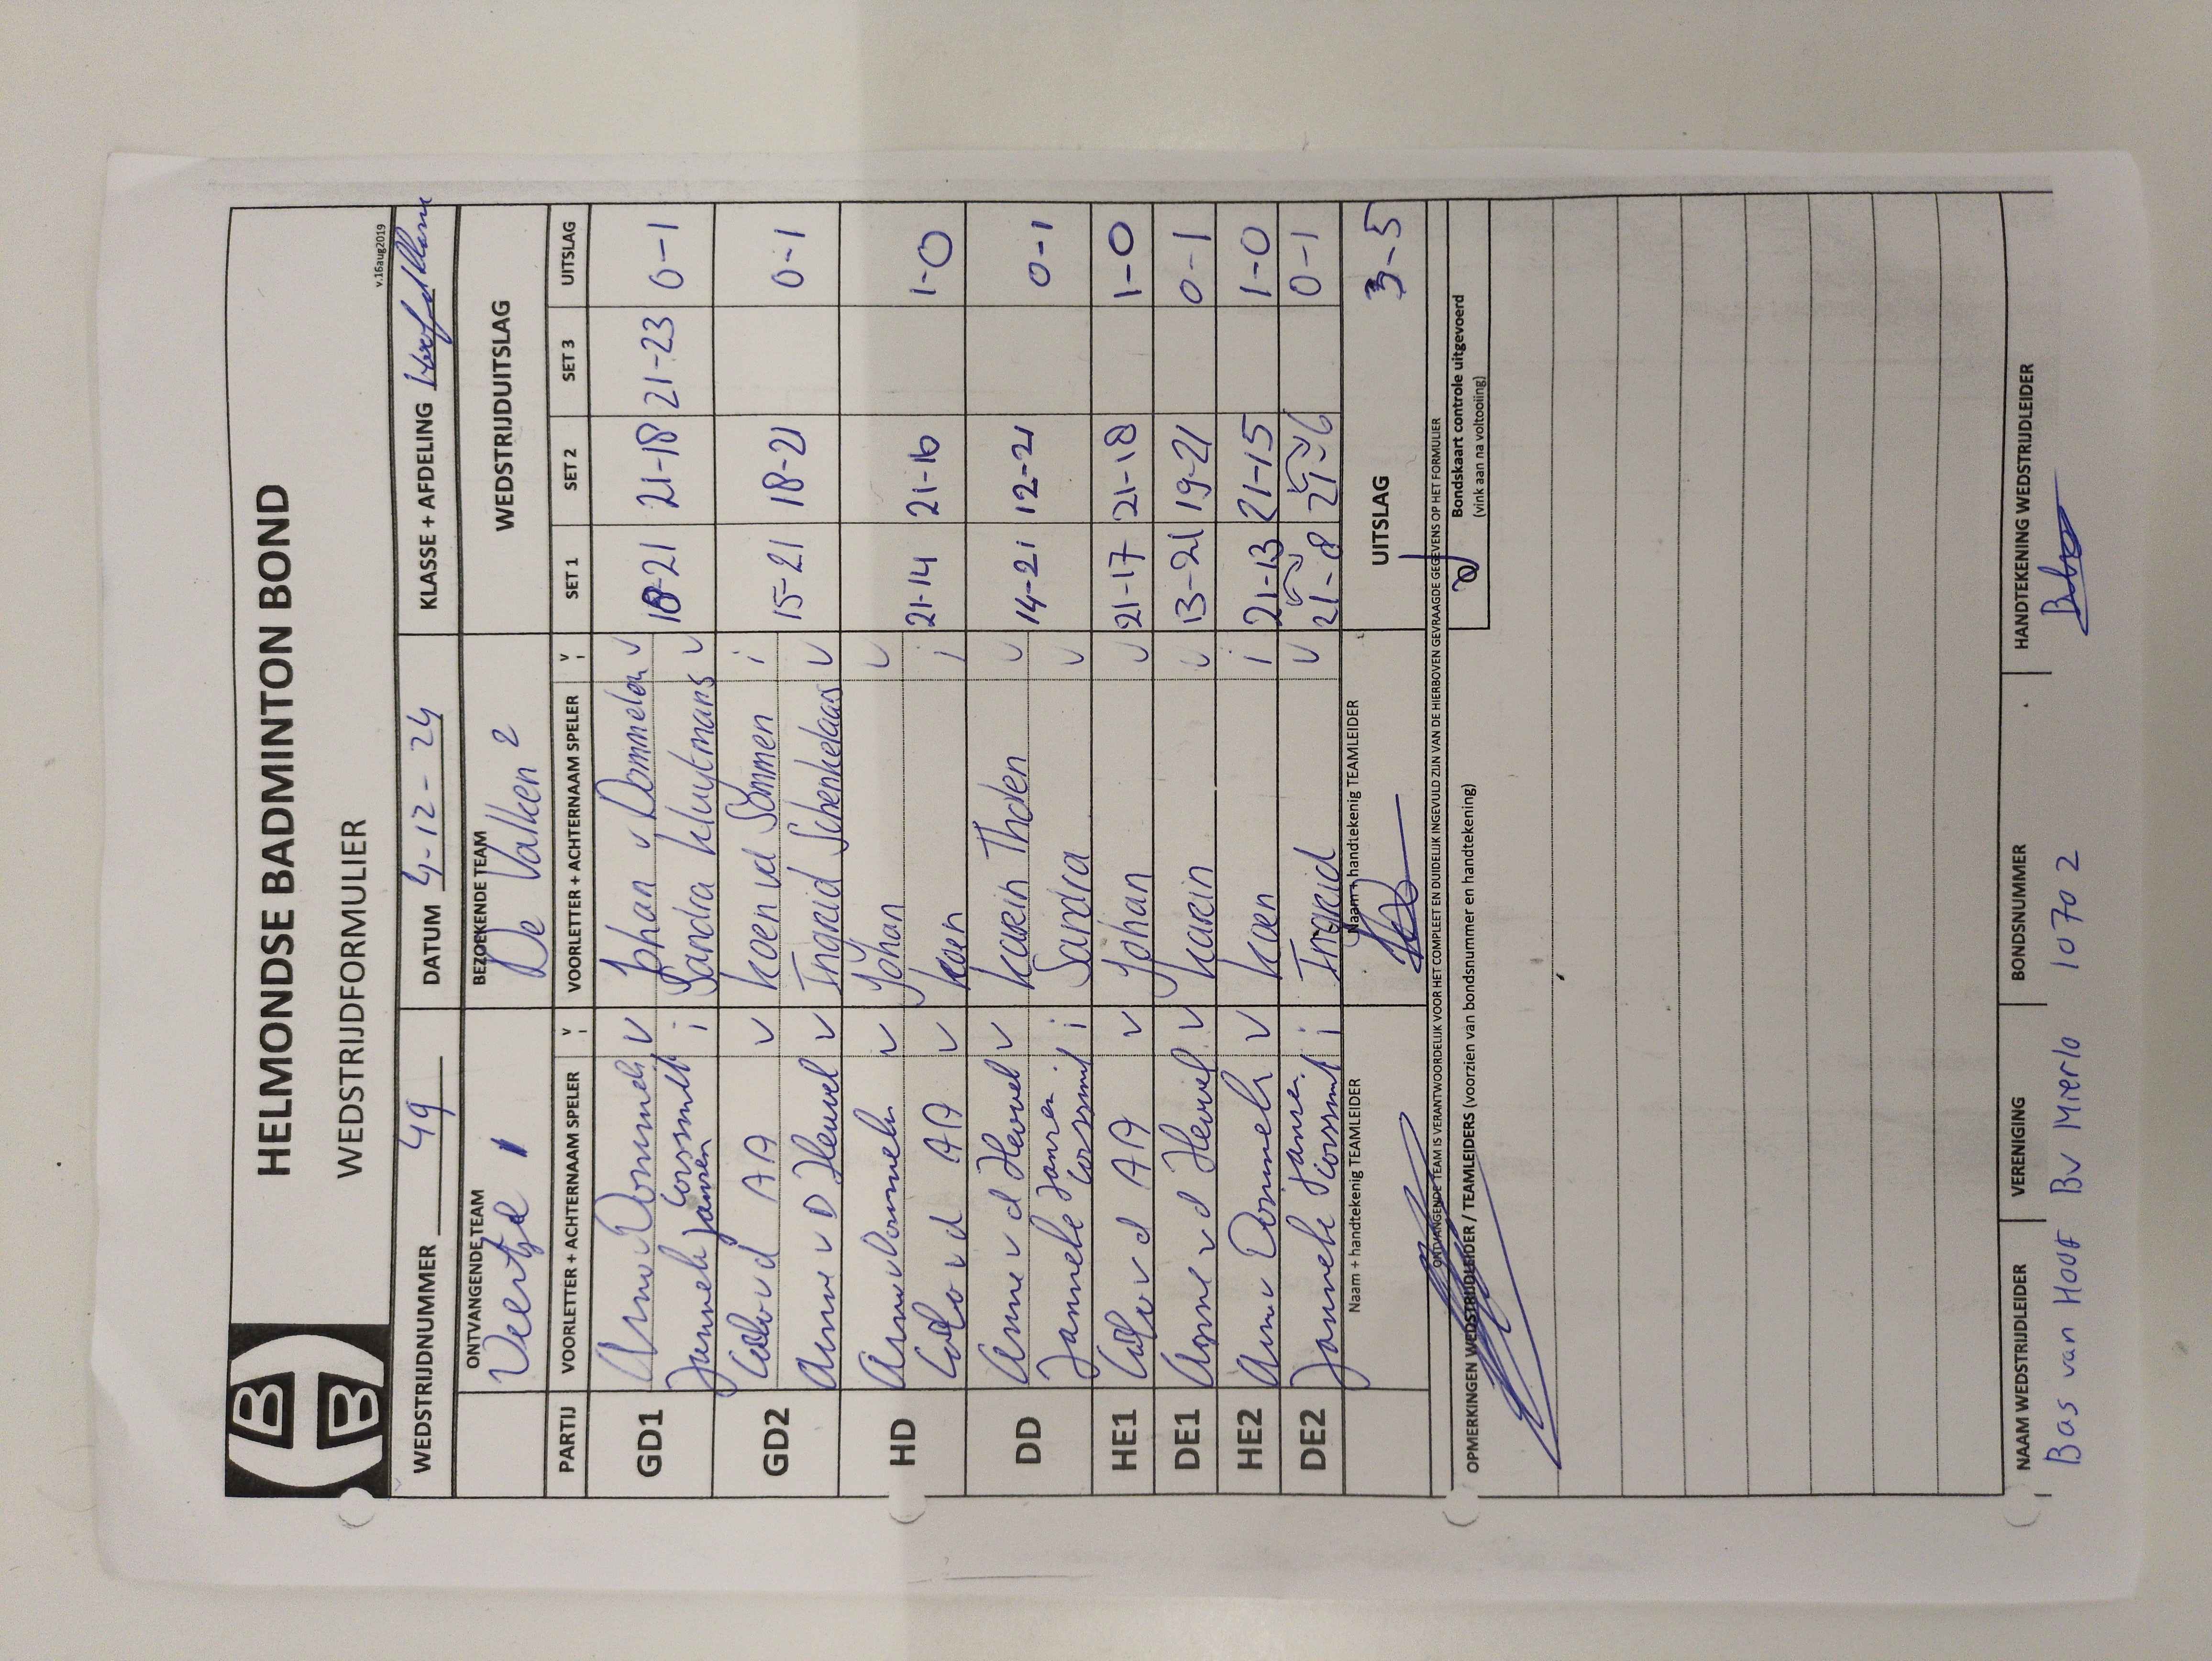 HELMONDSE BADMINTON BOND
WEDSTRIJDFORMULIER
v.16aug2019
WEDSTRIJDNUMMER 49 DATUM 4-12-24 KLASSE + AFDELING
ONTVANGENDE TEAM BEZOEKENDE TEAM WEDSTRIJDUITSLAG
Veertje 1 De Valken 2
PARTIJ VOORLETTER + ACHTERNAAM SPELER V I VOORLETTER + ACHTERNAAM SPELER V I SET 1 SET 2 SET 3 UITSLAG
GD1 v Dommeln V Johan v Dommelen V 18-21 21-18 21-23 0-1
Janneke Corssmit Jansen i Sandra Kluytmans V
GD2 v d AA V Koen vd Sommen i 15-21 18-21 0-1
Anne v D Heuvel V Ingrid Schenkelaars V
HD v Dommeln V Johan V 21-14 21-16 1-0
v d AA V Koen i
DD Anne v d Heuvel V Karin Tholen V 14-21 12-21 0-1
Janneke Jansen Corssmit i Sandra V
HE1 v d AA V Johan V 21-17 21-18 1-0
DE1 Anne v d Heuvel V Karin V 13-21 19-21 0-1
HE2 v Dommeln V Koen i 21-13 21-15 1-0
DE2 Janneke Jansen Corssmit i Ingrid V 21-8 21-6 0-1
Naam + handtekenig TEAMLEIDER Naam + handtekenig TEAMLEIDER UITSLAG 3-5
ONTVANGENDE TEAM IS VERANTWOORDELIJK VOOR HET COMPLEET EN DUIDELIJK INGEVULD ZIJN VAN DE HIERBOVEN GEVRAAGDE GEGEVENS OP HET FORMULIER
OPMERKINGEN WEDSTRIJDLEIDER / TEAMLEIDERS (voorzien van bondsnummer en handtekening) Bondskaart controle uitgevoerd
(vink aan na voltooiing)
NAAM WEDSTRIJDLEIDER VERENIGING BONDSNUMMER HANDTEKENING WEDSTRIJDLEIDER
Bas van Hoof BV Mierlo 10702